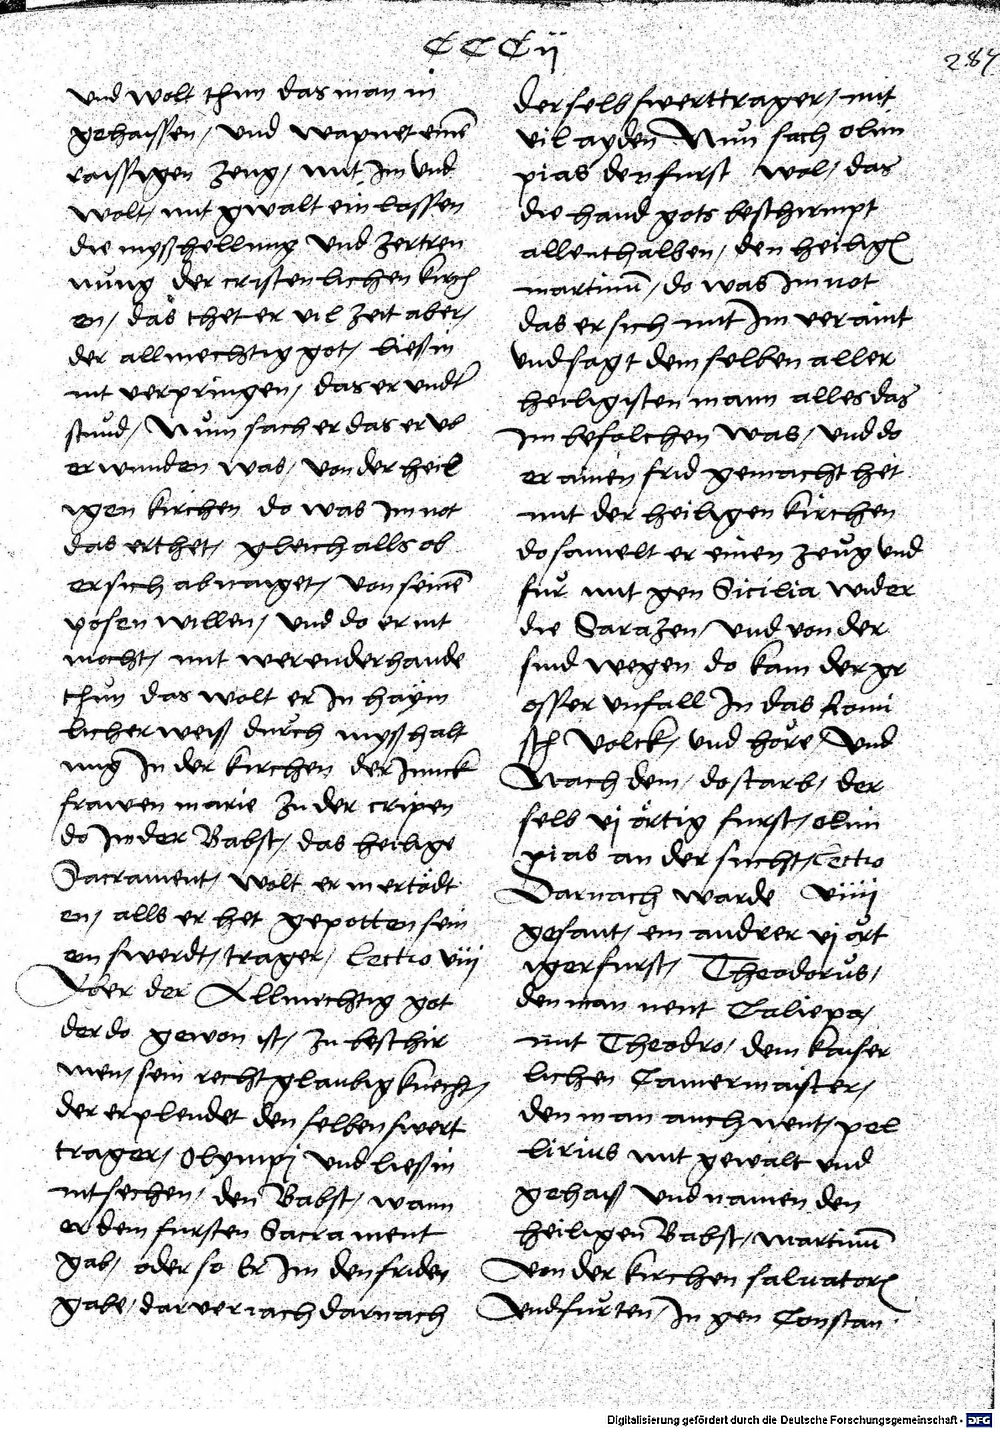 CCCii
284
und wolt thun das man in
gehaissen / und wapnet eine͂
raissigen zeug / mit Im und
wolt / mit gwalt ein lassen
die myßhellung und zertren
nu̇ng der cristenlichen kirch
en / das thet er vil zeit aber /
der allmechtig got / ließ in
nit verpringen / das er undt͛
stuͦnd / Nuͦn sach er das er ub
erwunden was / von der heil
igen kirchen do was Im not
das er thet / gleich alls ob
er sich abnaiget / von seine͂
posen willen / und do er nit
mocht / mit werender hande
thuͦn das wolt er In haym
licher weiß durch myßhalt
ung In der kirchen der Junck
frawen marie zu der cripen
do Im der Babst / das heilige
Sacrament / wolt er in ertödt
en / alls er het gepotten sein
em swerdt / trager / Lectio viij
Aber der Allmechtig got
der do gewon ist / zu beschir
men / sein recht glaubig knecht /
der erplendet den selben swert
trager / Olympi und ließ in
nit sechen / den Babst / wann
er dem fursten Sacrament
gab / oder so Er Im den friden
gabe / dar verjach darnach
der selb swerttrager / mit
vil ayden Nuͦn sach olim
pias den furst wol / das
die hand gots beschirmpt
allenthalben / den heilige͂
martinu͂ / do was Im not
das er sich mit Im veraint
und sagt dem selben aller
heiligisten mann alles das
Im befolchen was / und do
er ainen frid gemacht het
mit der heiligen kirchen
do samelt er einen zeug und
fuͦr mit gen Sicilia wider
die Sarazen / und von der
sind wegen do kam der gr
osser unfall In das Romi
sch Volck / und höre / Und
Nach dem / do starb / der
selb vj örtig furst / olim
pias an der sucht / Lectio
Darnach warde viiij
gesant / ein andrer vj ört
iger furst / Theodorus /
den man nent Caliepa /
mit Theodro / dem kaiser
lichen Camermaister /
den man auch nent / pel
lirius mit gewalt und
gehaiß und namen den
heiligen Babst / martinu͂
von der kirchen saluatoris
und furten / In gen Constan
Digitalisierung gefördert durch die Deutsche Forschungsgemeinschaft - DFG